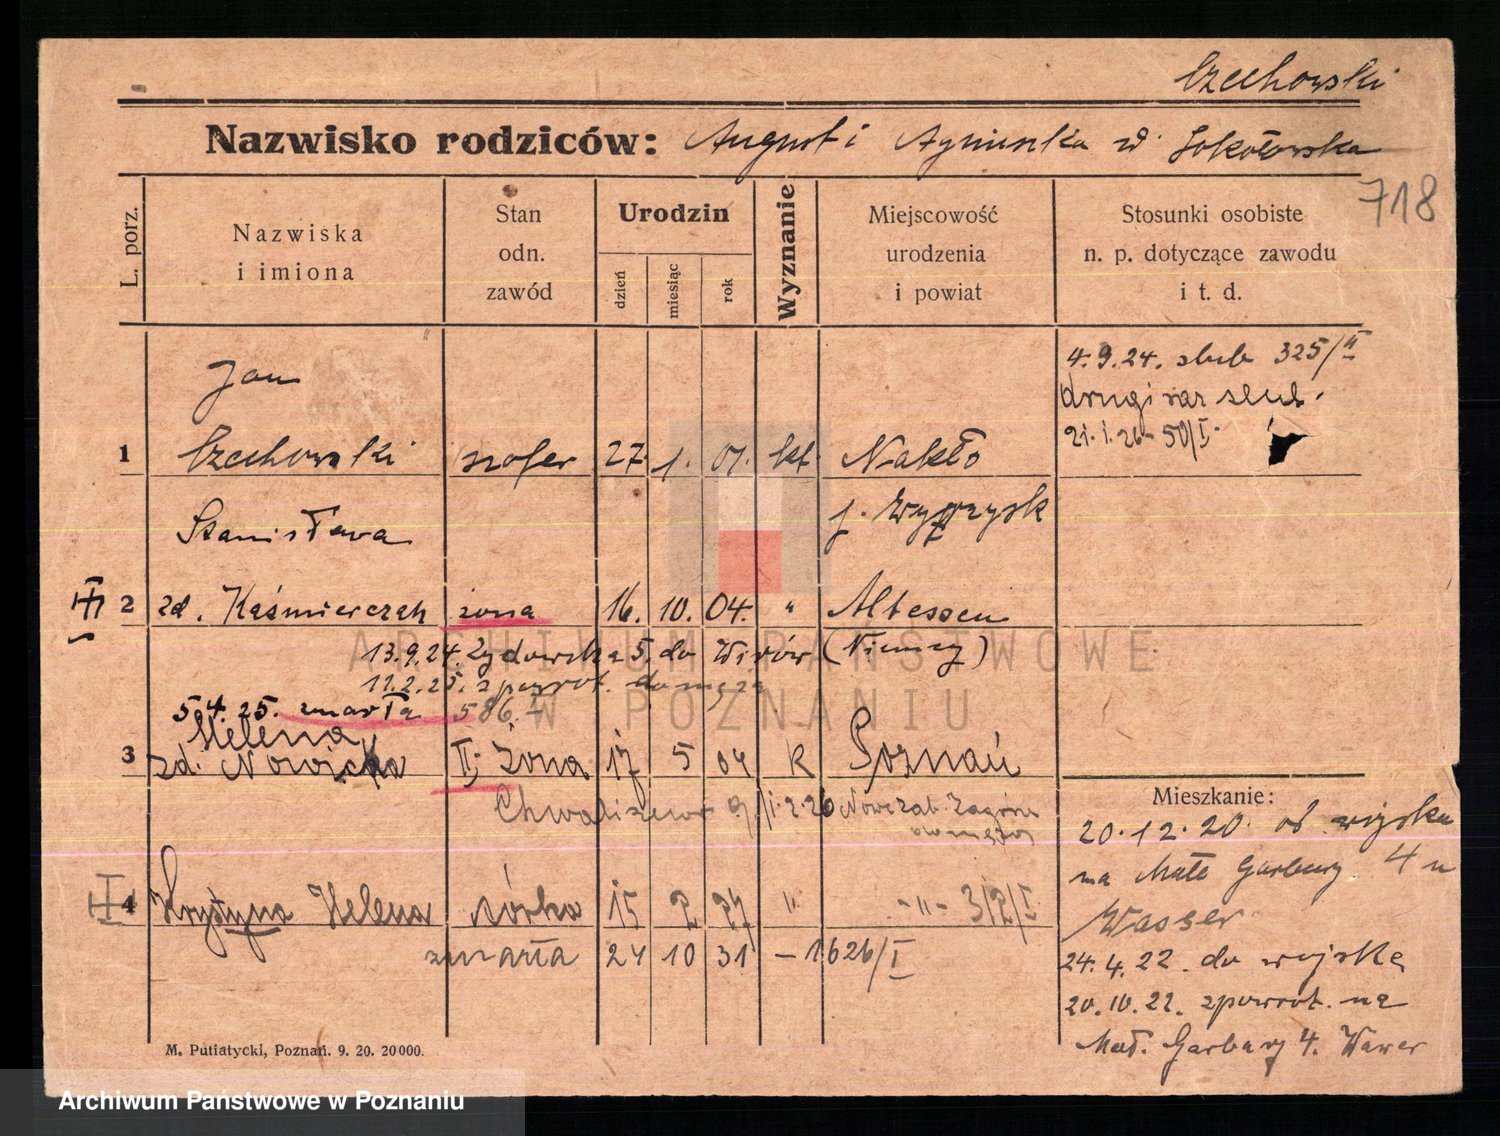 Czechowski
Nazwisko rodziców: August i Agnieszka w Sokołowska
718
L. porz.
Nazwiska
i imiona
Stan
odn.
zawód
Urodzin
dzień
miesiąc
rok
Wyznanie
Miejscowość
urodzenia
i powiat
Stosunki osobiste
n. p. dotyczące zawodu
i t. d.
Jan
1 Czechowski szofer 27. 1. 01. kt. Nakło
p. Wyrzysk
4.9.24. slub 325/II
drugi raz slub.
21.1.26 - 50/I.
Stanisława
2 zd. Kaśmierczak żona 16. 10. 04. " Altessen
(Niemcy)
13.9.24. Żydowska 5. do
11.2.25. z powrot. do męża
5.4.25. zmarła 586.I
Helena
3 zd. Nowicka II. żona 17 5 04 k Poznań
Chwaliszewo 9/1.2.26
Mieszkanie:
20.12.20. od wojska
na Małe Garbary 4 u
Wasser
24.4.22. do wojska
20.10.22. z powrot. na
Mał. Garbary 4.
4 Krystyna Helena córka 15 2 27 " -"- 312/I.
zmarła 24 10 31 - 1626/I
M. Putiatycki, Poznań. 9. 20. 20000.
ARCHIWUM PAŃSTWOWE
W POZNANIU
Archiwum Państwowe w Poznaniu